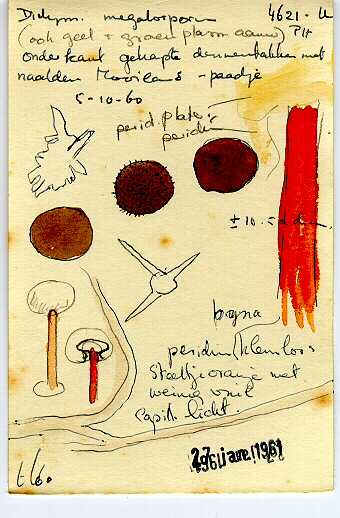 Didym. megalosporum 4621-U
(ook geel + groen plasm. aanw) Plt
onderkant gekapte dennentakken met
naalden Mooiland - paadje
5-10-60
perid. plates
peridium
± 10 - d.
bijna
peridium/kleurloos
Steeltje oranje met
weinig vuil
Capill. licht.
27 1961 june (1961
t60